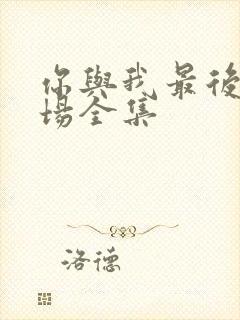 你與我最後
場全集
洛德